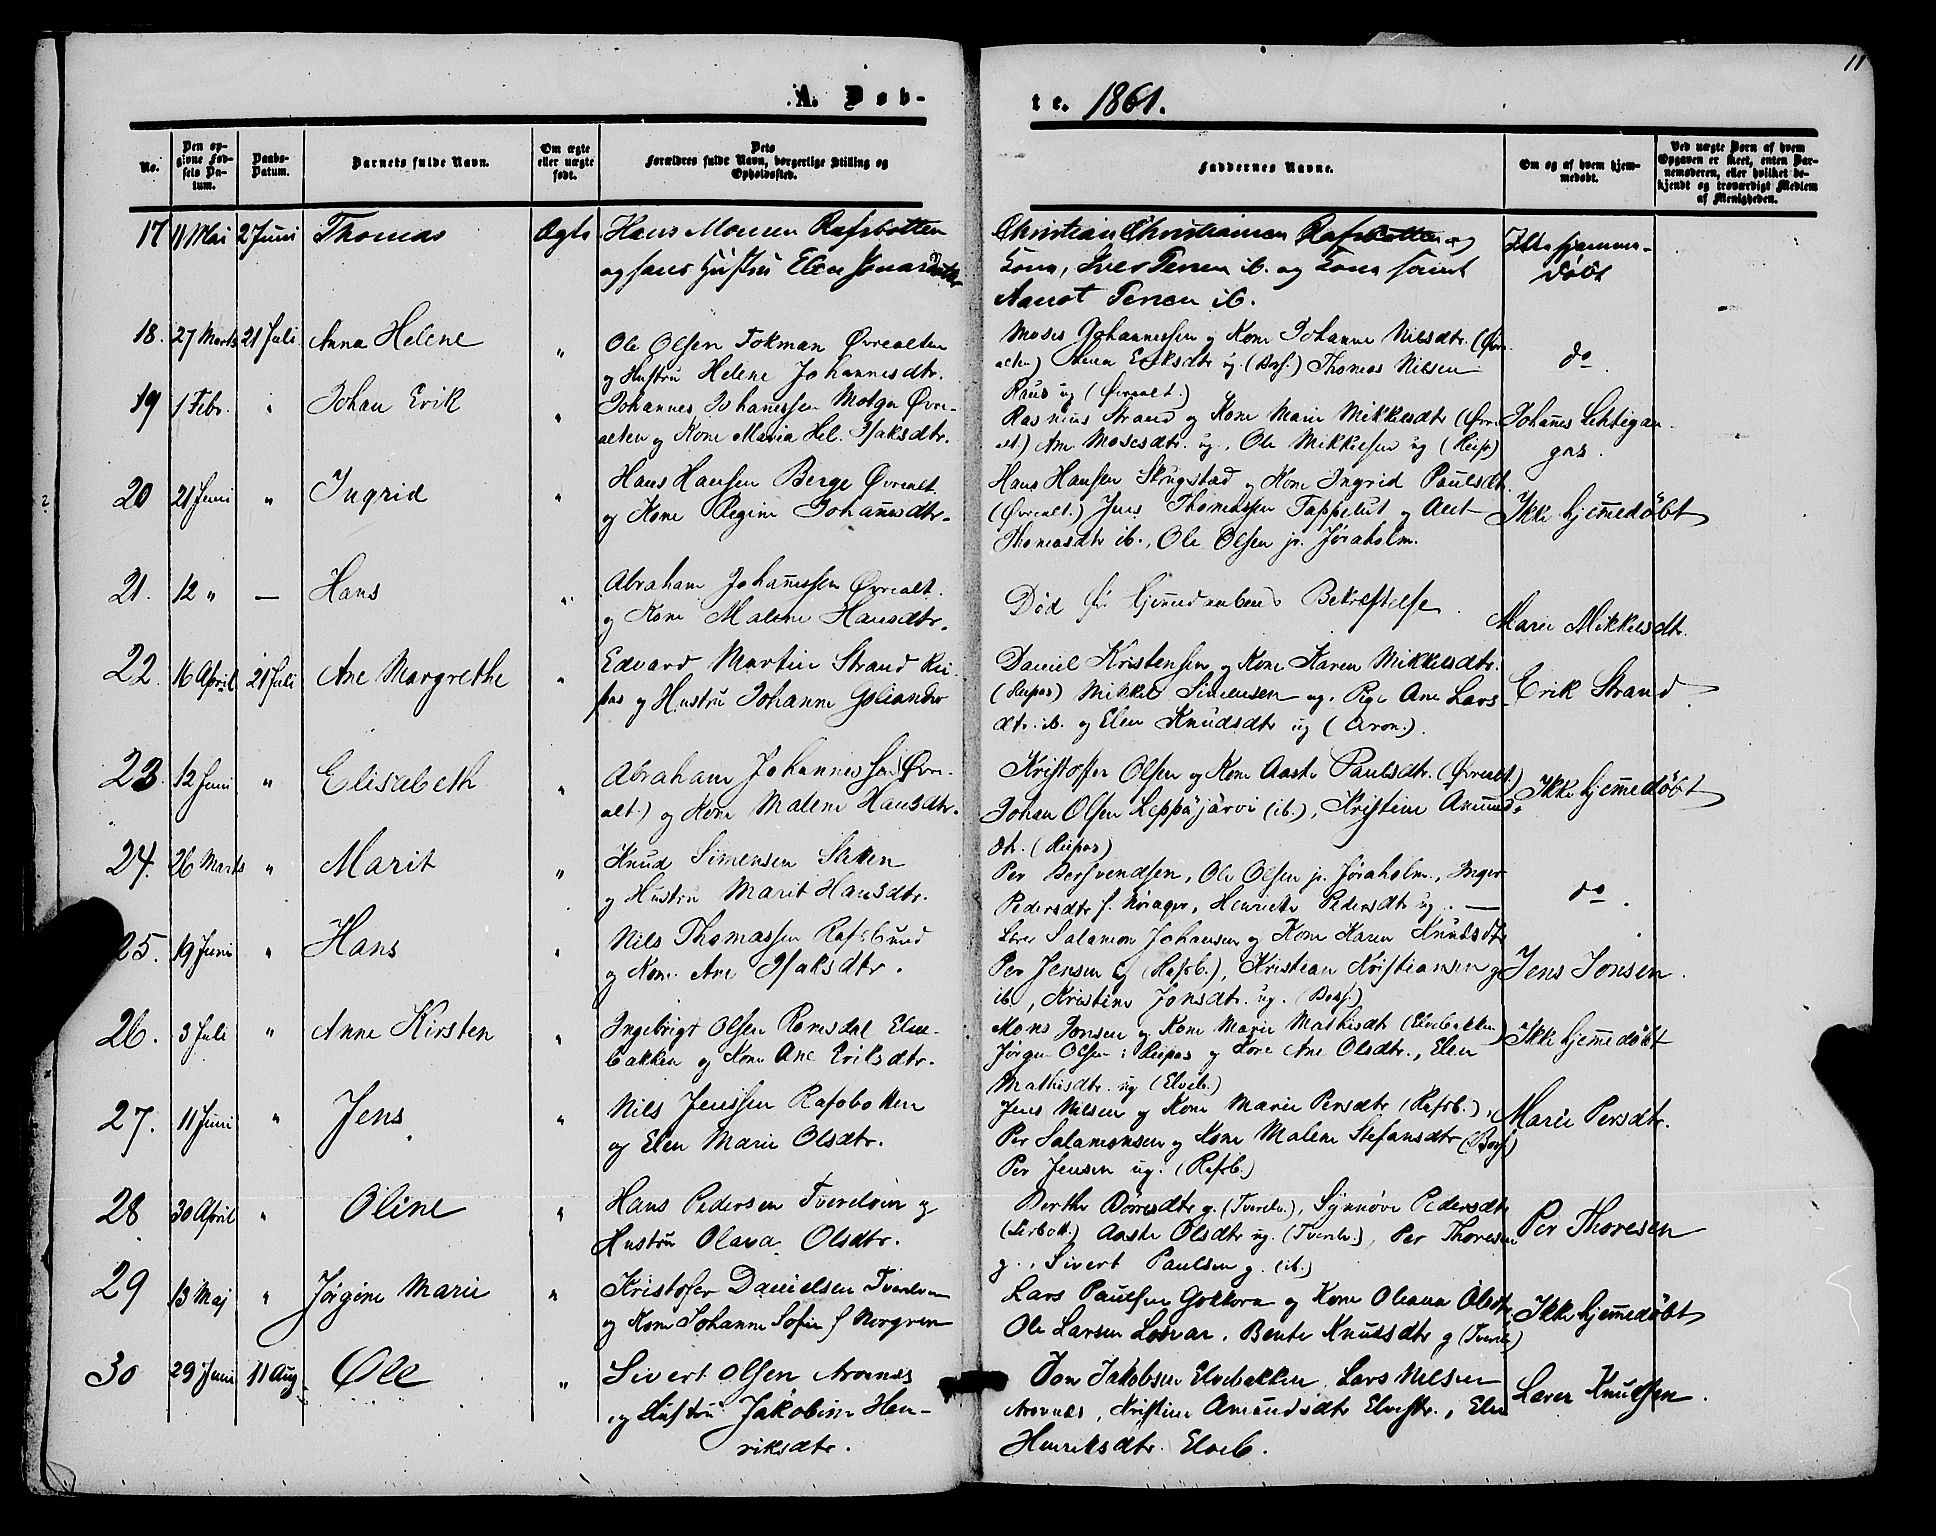 11
A. Døb-
te. 1861.
No.
Den op-
givne Fød-
sels Da-
tum.
Daabs-
Datum.
Barnets fulde Navn.
Om ægte
eller uægte
født.
Dets
Forældres fulde Navn, borgerlige Stilling og
Opholdssted.
Faddernes Navne.
Om og af hvem hjem-
medøbt.
Ved uægte Børn af hvem
Opgaven er skeet, enten Bar-
nemoderen, eller hvilket be-
kjendt og troværdigt Medlem
af Menigheden.
17 11 Mai 2 Juni Thomas Ægte Hans Monsen Rafsbotten
og hans Hustru Elen
Christian Christiansen Rafsbotten og
Kone, Iver ib. og Kone samt
ib.
Ikke hjemme-
døbt
18. 27 Marts 21 Juli Anna Helene " Ole Olsen Tokman Øvrealten
og Hustru Helene Johannesdtr.
Moses Johannessen og Kone Johanne Nilsdtr. (Øvre-
alten) Eriksdtr ug. (Bosf.) Thomas Nilsen
Raus ug (Øvrealt.)
do
19 1 Febr. " Johan Erik " Johannes Johannessen Motga Øvre-
alten og Kone Maria Hel. Isaksdtr.
Rasmus Strand og Kone Marie Mikkelsdtr (Øvre-
alt.) Ane Mosesdtr. ug., Ole Mikkelsen ug (Reip)
Johannes Lehtigan-
gas.
20 21 Juni " Ingrid " Hans Hansen Berge Øvrealt.
og Kone Regine Johannesdtr.
Hans Hansen Skogstad og Kone Ingrid Paulsdtr.
(Øvrealt.) Jens Thomassen Tappelut og
Thomasdtr ib., Ole Olsen jr. Jøraholm.
Ikke hjemmedøbt
21. 12 " — Hans " Abraham Johannessen Øvrealt.
og Kone Malene Hansdtr.
Død før Hjemmedaabens Bekræftelse.
Marie Mikkelsdtr.
22. 16 April 21 Juli Ane Margrethe " Edvard Martin Strand Rei-
pas og Hustru Johanne
Daniel Kristensen og Kone Karen Mikkelsdtr.
(Reipas) Mikkel Simensen ug. Pige Ane Lars-
dtr. ib. og Elen Knudsdtr ug (Aron.).
Erik Strand
23. 12 Juni " Elisabeth " Abraham Johannessen (Øvre-
alt.) og Kone Malene Hansdtr.
Kristoffer Olsen og Kone Aaste Paulsdtr. (Øvrealt.)
Johan Olsen Leppäjärvi (ib.), Kristine Amunds-
dtr. (Reipas)
Ikke hjemmedøbt
24. 26 Marts " Marit " Knud Simensen
og Hustru Marit Hansdtr.
Per Bersvendsen, Ole Olsen jr. Jøraholm, Inger
Pedersdtr f. Norager, Henriette Pedersdtr ug. —
do.
25. 19 Juni " Hans " Nils Thomassen Rafsbund
og Kone Ane Isaksdtr.
Salamon Johansen og Kone Karen Knudsdtr
Per Jensen g (Rafsb.), Kristian Kristiansen g
ib., Kristine Jonsdtr. ug. (Bosf.)
Jens Jonsen.
26. 3 Juli " Anne Kirsten " Ingebrigt Olsen Romsdal Elve-
bakken og Kone Ane Eriksdtr.
Mons Jonsen og Kone Marie Mathisdtr (Elvebakken)
Jørgen Olsen i Reipas og Kone Ane Olsdtr., Elen
Mathisdtr. ug (Elveb.)
Ikke hjemmedøbt
27. 11 Juni " Jens " Nils Jenssen Rafsbotten
og Elen Marie Olsdtr.
Jens Nilsen og Kone Marie Persdtr (Rafsb.),
Per Salamonsen og Kone Malene Stefansdtr (Bosf.)
Per Jensen ug. (Rafsb.)
Marie Persdtr.
28 30 April " Oline " Hans Pedersen Tverelven og
Hustru Olava Olsdtr.
Berthe g. (Tverelv.), Synnøve Pedersdtr
(Lerbott.) Aaste Olsdtr ug. (Tverelv.), Per Thoresen
g., Sivert Paulsen g. (ib.)
Per Thoresen
29 13 Maj " Jørgine Marie " Kristofer Danielsen Tverelven
og Kone Johanne Sofie f Norgren
Lars Paulsen Gokkora og Kone Oleana Olsdtr
Ole Larsen Losvar, Bente Knudsdtr g (Tverelv.)
Ikke hjemmedøbt
30 29 Juni 11 Aug Ole " Sivert Olsen Aronnes
og Hustru Jakobine Hen-
riksdtr.
Jon Jakobsen Elvebakken, Lars Nilsen
Aronnes, Kristine Amundsdtr Elvestr., Elen
Henriksdtr. Elveb.
Lærer Knutsen.